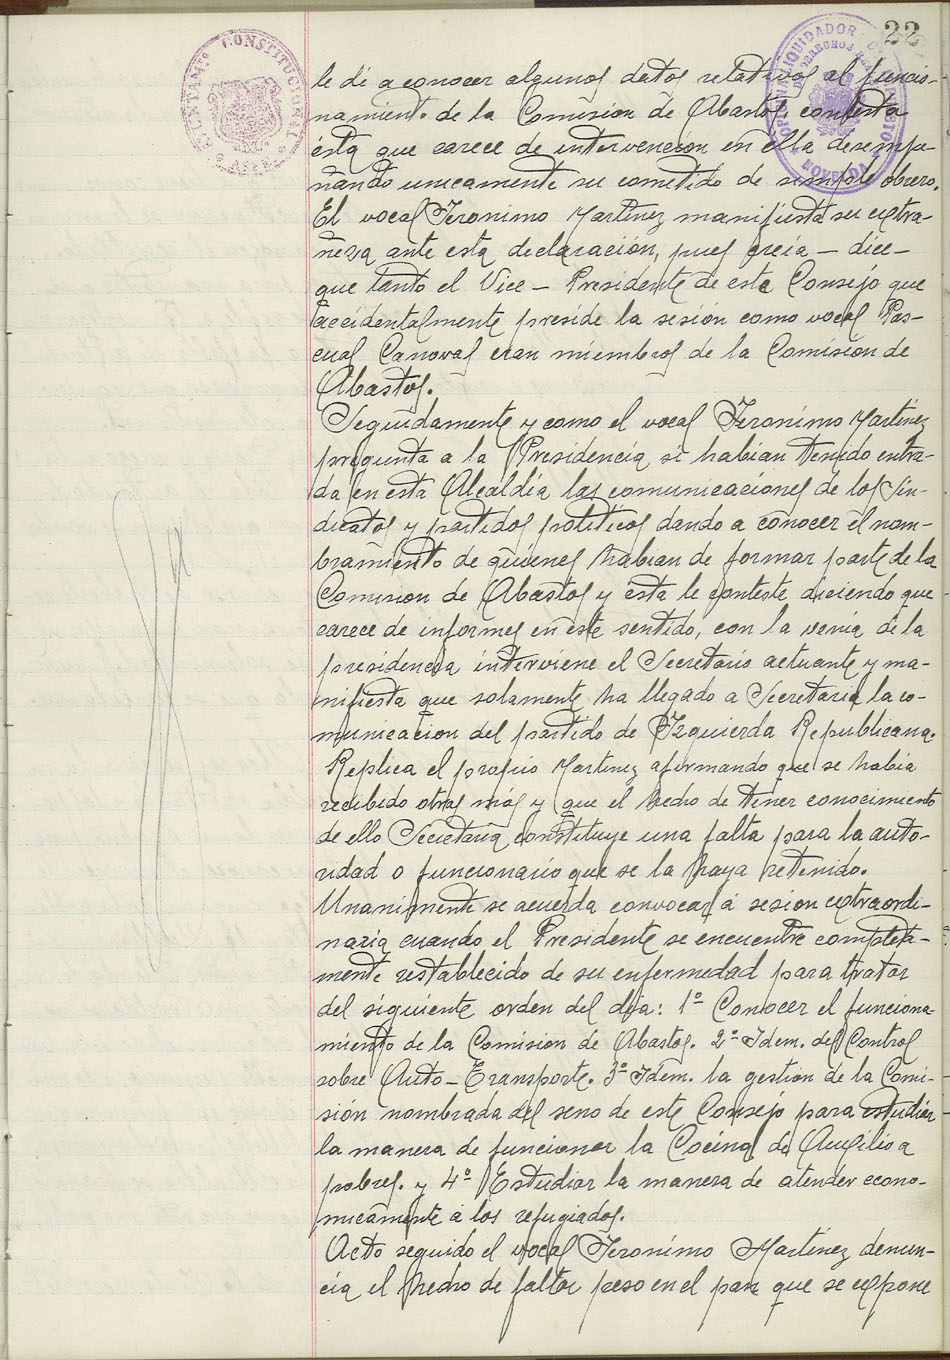 22
AYUNTAMTO CONSTITUCIONAL
ASPE
OFICINA LIQUIDADORA
DERECHOS
NOVELDA
le dé a conocer algunos datos relativos al funcio-
namiento de la Comisión de Abastos contesta
ésta que carece de intervención en ella desempe-
ñando unicamente su cometido de simple obrero.
El vocal Jeronimo Martinez manifiesta su extra-
ñeza ante esta declaración, pues creia – dice –
que tanto el Vice – Presidente de este Consejo que
accidentalmente preside la sesión como vocal Pas-
cual Canoval eran miembros de la Comisión de
Abastos.
Seguidamente y como el vocal Jeronimo Martinez
pregunta a la Presidencia si habian tenido entra-
da en esta Alcaldía las comunicaciones de los Sin-
dicatos y partidos politicos dando a conocer el nom-
bramiento de quienes habian de formar parte de la
Comision de Abastos y esta le conteste diciendo que
carece de informes en este sentido, con la venia de la
presidencia interviene el Secretario actuante y ma-
nifiesta que solamente ha llegado a Secretaria la co-
municacion del partido de Izquierda Republicana.
Replica el propio Martinez afirmando que se había
recibido otras más y que el hecho de tener conocimiento
de ello Secretaría constituye una falta para la auto-
ridad o funcionario que se la haya retenido.
Unanimente se acuerda convocar á sesion extraordi-
naria cuando el Presidente se encuentre completa-
mente restablecido de su enfermedad para tratar
del siguiente orden del día: 1º Conocer el funciona-
miento de la Comision de Abastos. 2º Idem. del Control
sobre Auto – Transporte. 3º Idem. la gestion de la Comi-
sión nombrada del seno de este Consejo para estudiar
la manera de funcionar la Cocina de Auxilio a
pobres. y 4º Estudiar la manera de atender econo-
micamente á los refugiados.
Acto seguido el vocal Jeronimo Martinez denun-
cia el hecho de faltar peso en el pan que se expone